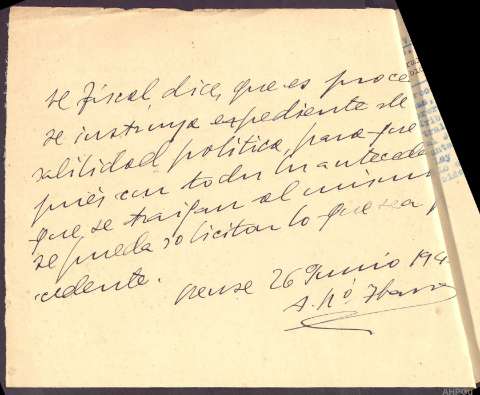 se Fiscal, dice, que es proce
se instruya expediente de
salilidad política, para que
pués con todos los antecede
que se traigan al mismo
se pueda solicitar lo que sea p
cedente.
Orense 26 Junio 194
A. Rº Ibarra
AHPOU